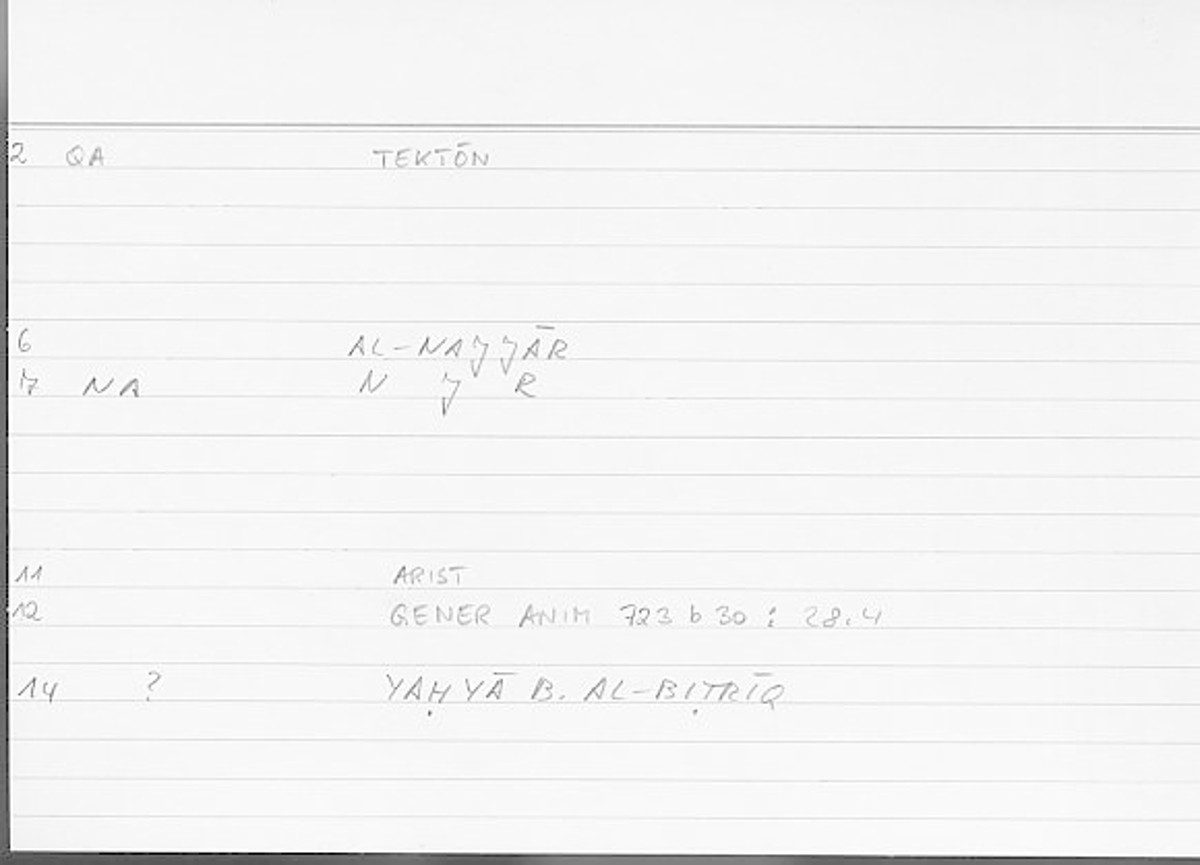 2 QA TEKTŌN
6 AL-NAJJĀR
7 NA N J R
11 ARIST
12 GENER ANIM 723 b 30 : 28.4
14 ? YAḤYĀ B. AL-BIṬRĪQ